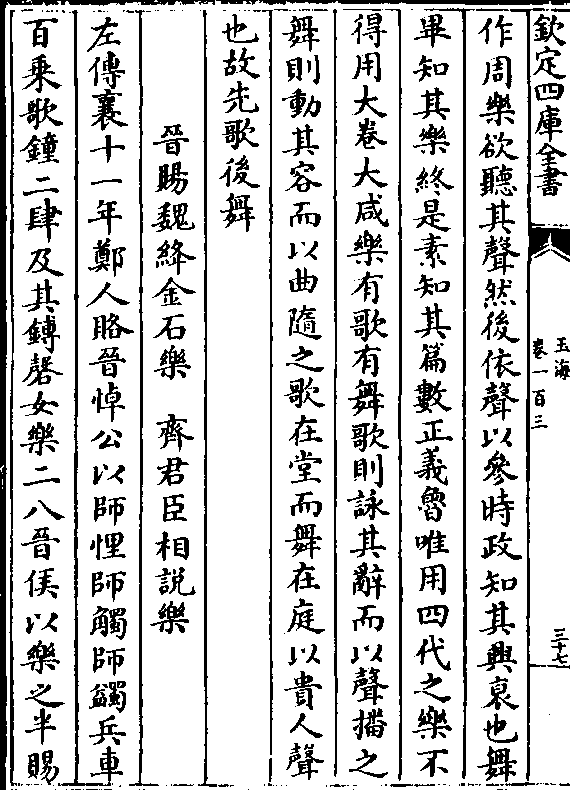 欽定四庫全書
玉海
卷一百三
三十七
作周樂欲聽其聲然後依聲以參時政知其興衰也舞
畢知其樂終是素知其篇數正義魯唯用四代之樂不
得用大卷大咸樂有歌有舞歌則詠其辭而以聲播之
舞則動其容而以曲隨之歌在堂而舞在庭以貴人聲
也故先歌後舞
晉賜魏絳金石樂　齊君臣相説樂
左傳襄十一年鄭人賂晉悼公以師悝師觸師蠲兵車
百乘歌鐘二肆及其鎛磬女樂二八晉侯以樂之半賜